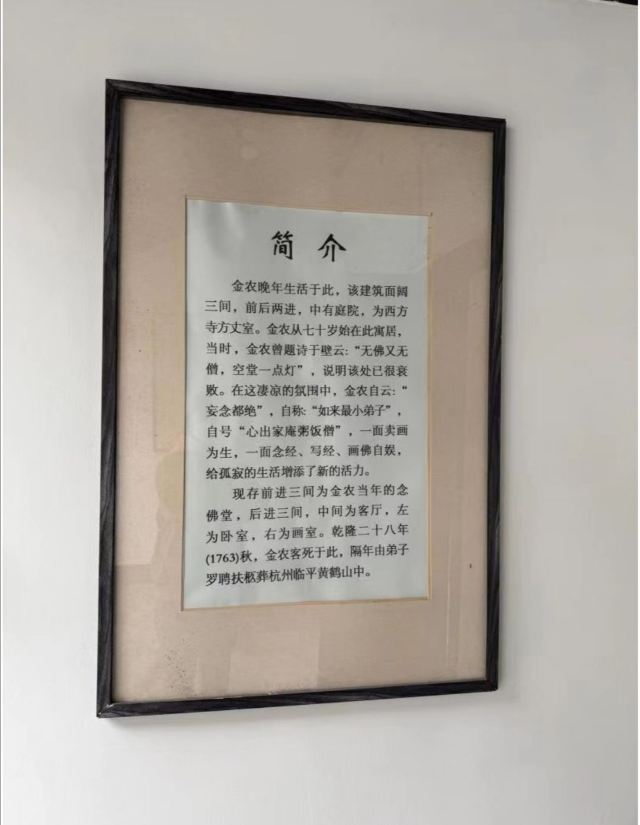 简 介
金农晚年生活于此，该建筑面阔
三间，前后两进，中有庭院，为西方
寺方丈室。金农从七十岁始在此寓居，
当时，金农曾题诗于壁云：“无佛又无
僧，空堂一点灯”，说明该处已很衰
败。在这凄凉的氛围中，金农自云：“
妄念都绝”，自称：“如来最小弟子”，
自号“心出家庵粥饭僧”，一面卖画
为生，一面念经、写经、画佛自娱，
给孤寂的生活增添了新的活力。
现存前进三间为金农当年的念
佛堂，后进三间，中间为客厅，左
为卧室，右为画室。乾隆二十八年
(1763)秋，金农客死于此，隔年由弟子
罗聘扶柩葬杭州临平黄鹤山中。